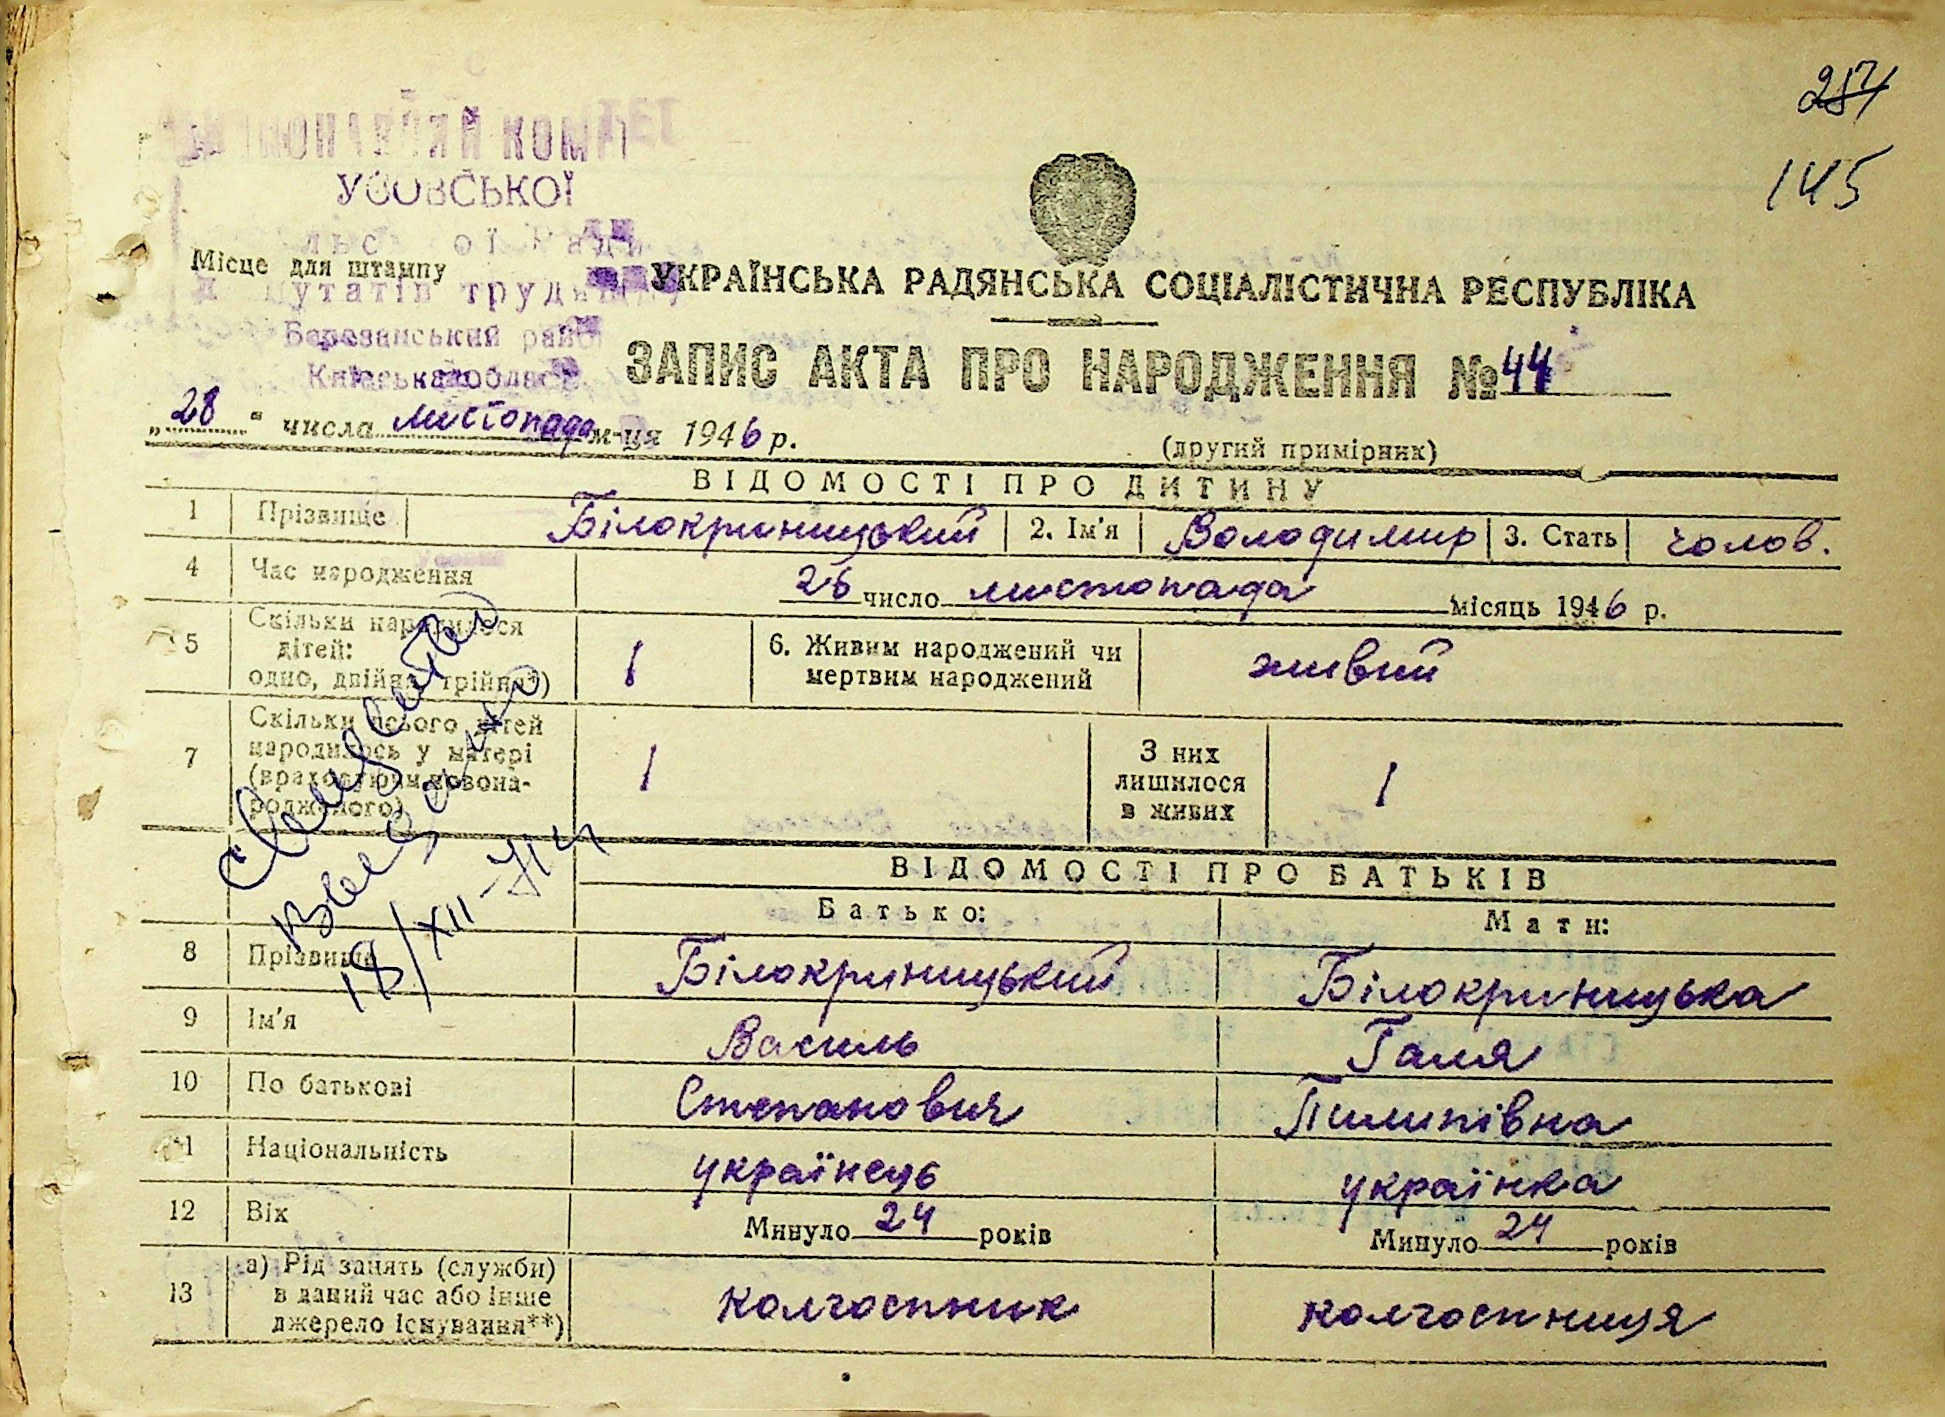 145
УСОВСЬКОЇ
Місце для штампу
УКРАЇНСЬКА РАДЯНСЬКА СОЦІАЛІСТИЧНА РЕСПУБЛІКА
Березанський район
Київська область
ЗАПИС АКТА ПРО НАРОДЖЕННЯ № 44
„28" числа листопада м-ця 1946 р.
(другий примірник)
ВІДОМОСТІ ПРО ДИТИНУ
1 Прізвище Білокриницький 2. Ім'я Володимир 3. Стать чолов.
4 Час народження 26 число листопада місяць 1946 р.
5 Скільки народилося дітей: одно, двійня, трійня*) 1 6. Живим народжений чи мертвим народжений живий
7 Скільки всього дітей народилось у матері (враховуючи новонародженого) 1 З них лишилося в живих 1
ВІДОМОСТІ ПРО БАТЬКІВ
Батько: Мати:
8 Прізвище Білокриницький Білокриницька
9 Ім'я Василь Галя
10 По батькові Степанович Пилипівна
11 Національність українець українка
12 Вік Минуло 24 років Минуло 24 років
13 а) Рід занять (служби) в даний час або інше джерело існування**) колгоспник колгоспниця
18/XII-71